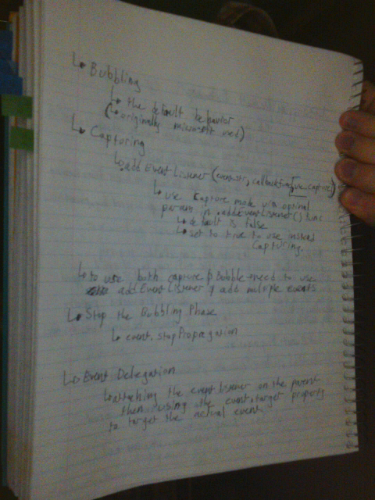 ↳ Bubbling
↳ the default behavior
(originally microsoft
↳ Capturing
↳ addEventListener(event, callback, [use capture])
↳ use capture mode via optional
param in .addEventListener()
↳ default is false
↳ set to true to use instead
capturing
↳ to use both capture & bubble need to use
addEventListener & add multiple events
↳ Stop the Bubbling Phase
↳ event.stopPropagation
↳ Event Delegation
↳ attaching the event listener on the parent
then using the event.target property
to target the actual event.